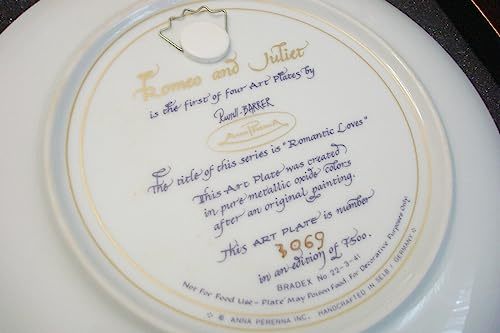 Romeo and Juliet
is the first of four Art Plates by
Russell-BARRER
ANNA PERENNA
The title of this series is "Romantic Loves"
This Art Plate was created
in pure metallic oxide colors
after an original painting.
This ART PLATE is number
3969
in an edition of 7500.
BRADEX No. 22-3-41
Not For Food Use - Plate May Poison Food. For Decorative Purposes Only
© ANNA PERENNA INC. HANDCRAFTED IN SELB / GERMANY